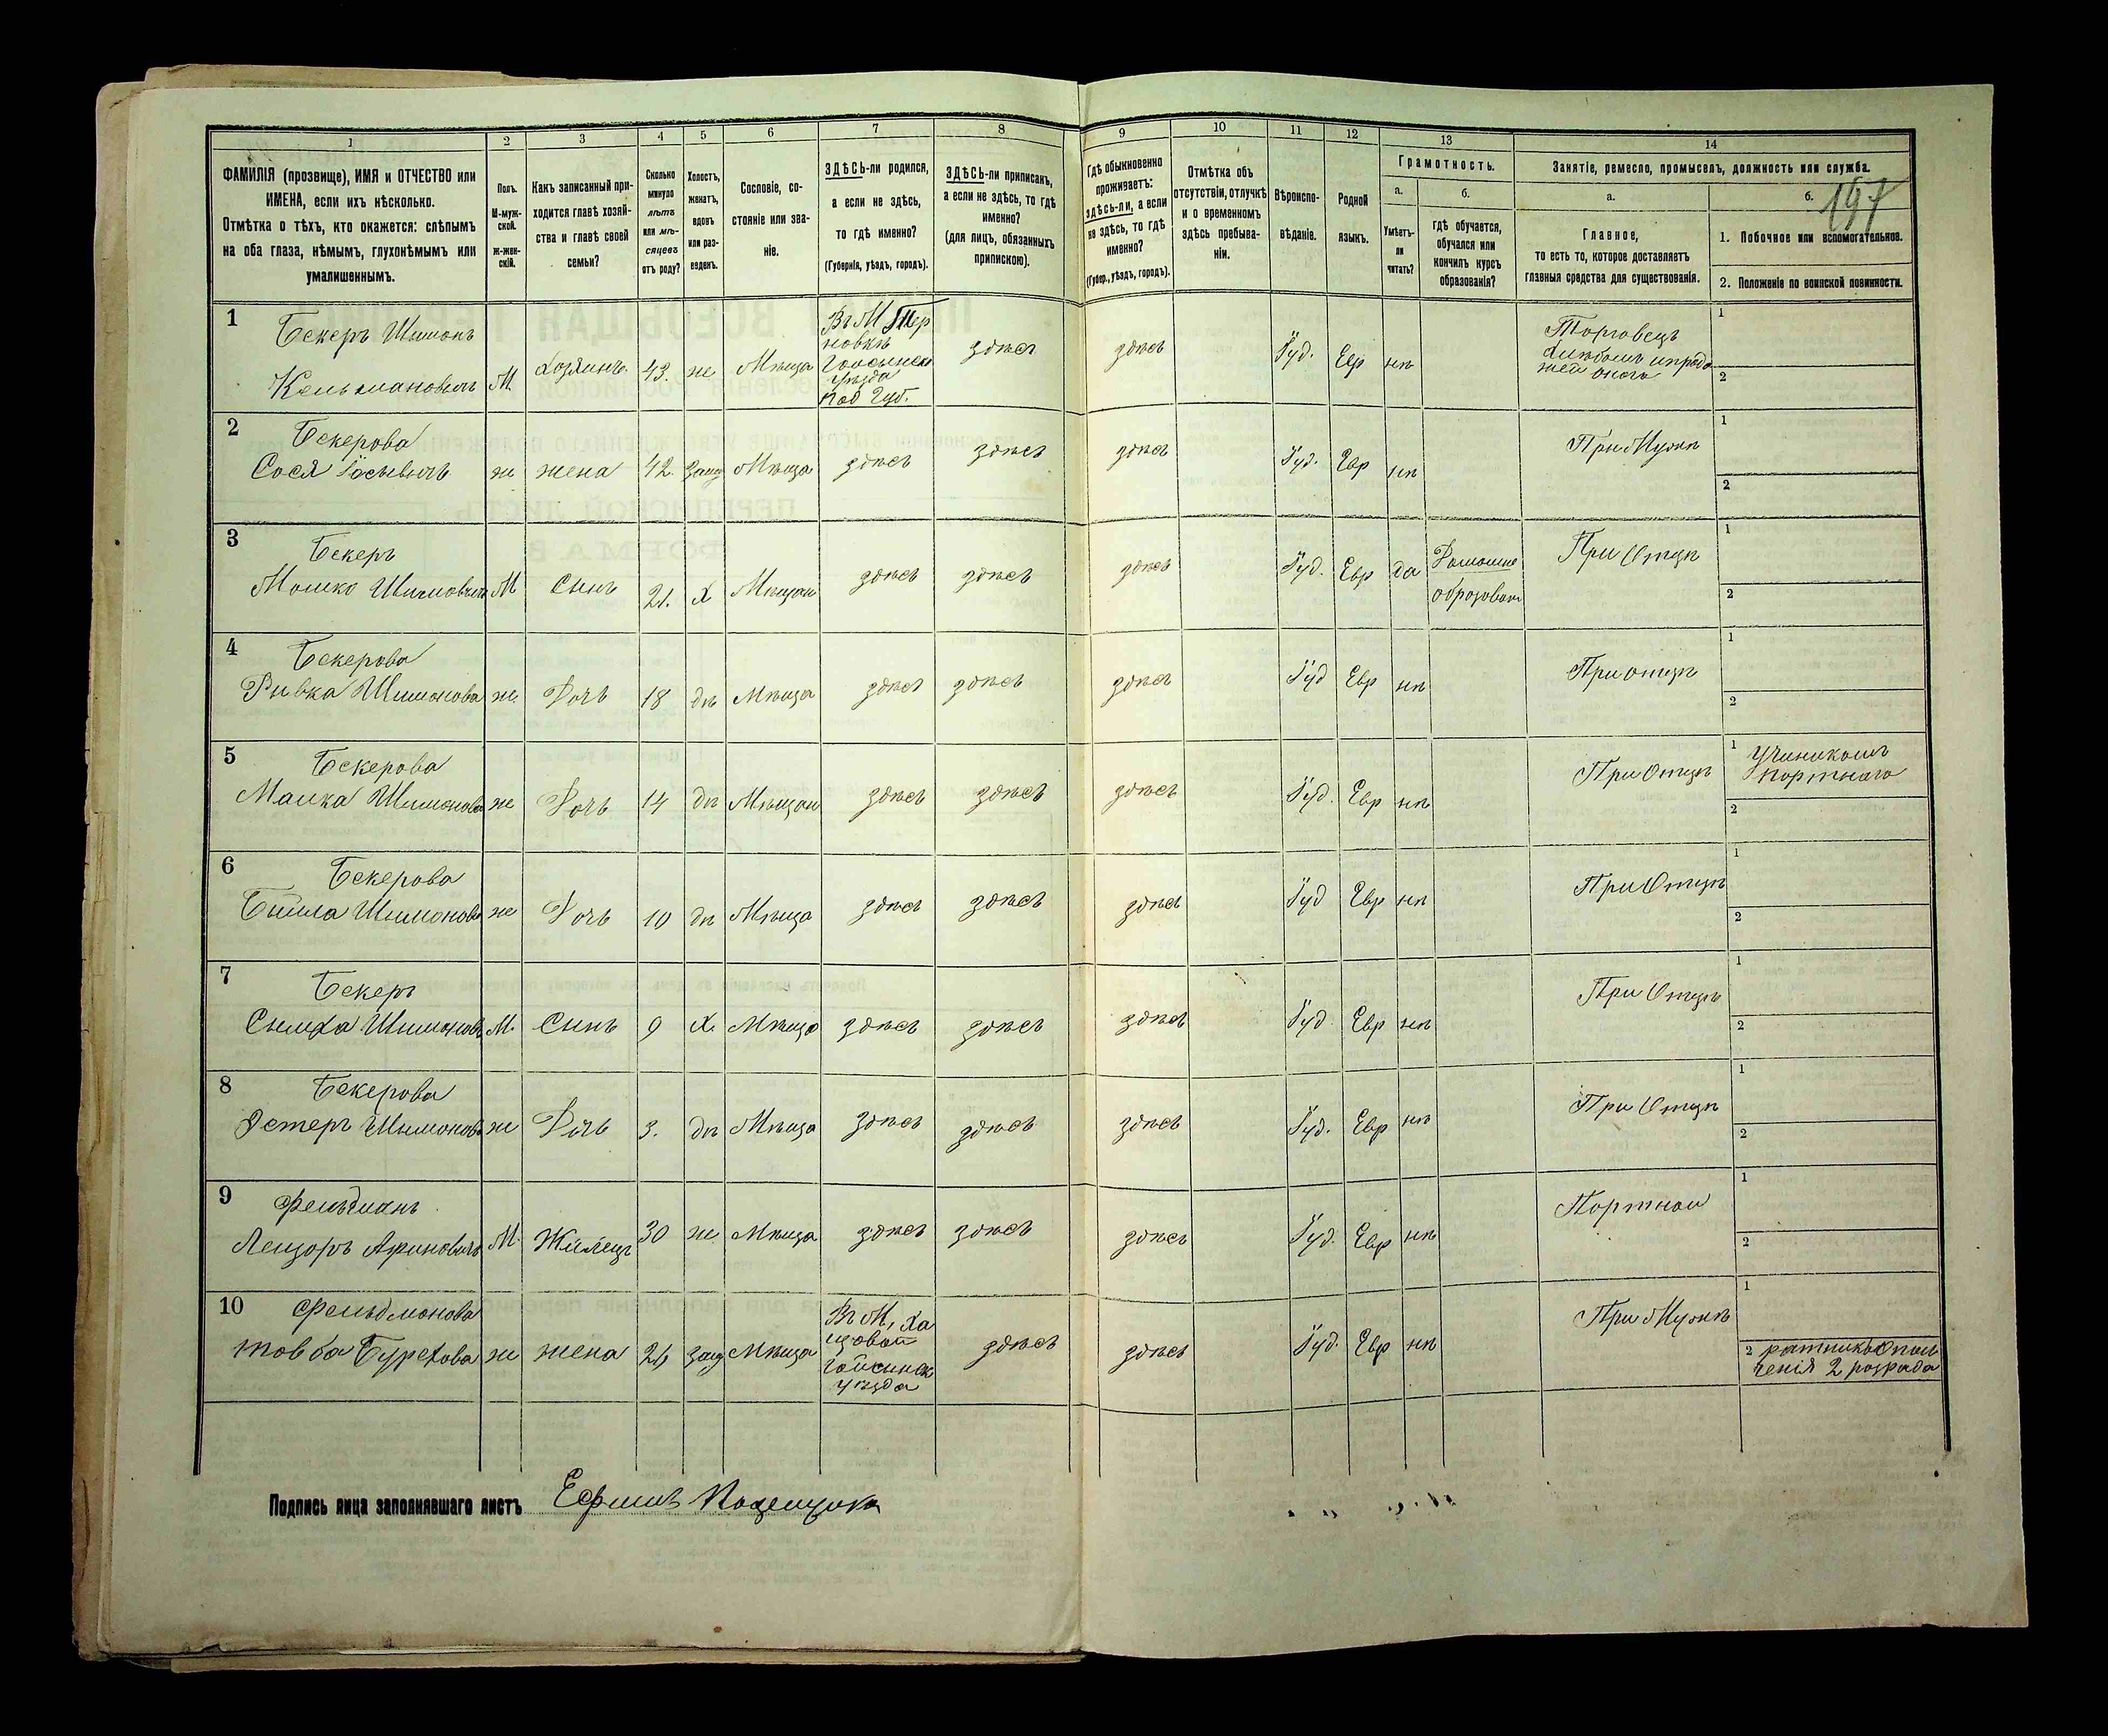 1 2 3 4 5 6 7 8 9 10 11 12 13 14
ФАМИЛІЯ (прозвище), ИМЯ и ОТЧЕСТВО или
ИМЕНА, если ихъ нѣсколько.
Отмѣтка о тѣхъ, кто окажется: слѣпымъ
на оба глаза, нѣмымъ, глухонѣмымъ или
умалишеннымъ.
Полъ.
М-муж-
ской.
ж-жен-
скій.
Какъ записанный при-
ходится главѣ хозяй-
ства и главѣ своей
семьи?
Сколько
минуло
лѣтъ
или мѣ-
сяцевъ
отъ роду?
Холостъ,
женатъ,
вдовъ
или раз-
веденъ.
Сословіе, со-
стояніе или зва-
ніе.
ЗДѢСЬ-ли родился,
а если не здѣсь,
то гдѣ именно?
(Губернія, уѣздъ, городъ).
ЗДѢСЬ-ли приписанъ,
а если не здѣсь, то гдѣ
именно?
(для лицъ, обязанныхъ
припискою).
Гдѣ обыкновенно
проживаетъ:
здѣсь-ли, а если
не здѣсь, то гдѣ
именно?
(Губер., уѣздъ, городъ).
Отмѣтка объ
отсутствіи, отлучкѣ
и о временномъ
здѣсь пребыва-
ніи.
Вѣроиспо-
вѣданіе.
Родной
языкъ.
Грамотность.
а.
Умѣетъ-
ли
читать?
б.
гдѣ обучается,
обучался или
кончилъ курсъ
образованія?
Занятіе, ремесло, промыселъ, должность или служба.
а.
Главное,
то есть то, которое доставляетъ
главныя средства для существованія.
б.
197
1. Побочное или вспомогательное.
2. Положеніе по воинской повинности.
1 Бекеръ Шимонъ
Кельмановичъ М. Хозяинъ 43. же Мѣща
Въ М Тер
новкѣ
Гайсинска
уѣзда
Под Губ.
здѣсь здѣсь Іуд. Евр нѣ
Торговецъ
1
2
2 Бекерова
Сося Іосьевичъ ж жена 42. заму Мѣща здѣсь здѣсь здѣсь Іуд. Евр нѣ При Мужѣ
1
2
3 Бекеръ
Мошко Шимоновичъ М Сынъ 21. Х Мѣщан здѣсь здѣсь здѣсь Іуд. Евр да Домашне
образован
При Отцѣ
1
2
4 Бекерова
Ривка Шимонова ж. Дочь 18 дѣ Мѣща здѣсь здѣсь здѣсь Іуд Евр нѣ При отцѣ
1
2
5 Бекерова
Малка Шимонова ж Дочь 14 дѣ Мѣщан здѣсь здѣсь здѣсь Іуд. Евр нѣ При Отцѣ
1 Учиникомъ
Портнаго
2
6 Бекерова
Бейла Шимонова ж Дочь 10 дѣ Мѣща здѣсь здѣсь здѣсь Іуд Евр нѣ При Отцѣ
1
2
7 Бекеръ
Симха Шимоновъ М. Сынъ 9 Х. Мѣща здѣсь здѣсь здѣсь Іуд Евр нѣ При Отцѣ
1
2
8 Бекерова
Эстеръ Шимоновъ ж Дочь 3. дѣ Мѣща здѣсь здѣсь здѣсь Іуд. Евр нѣ При Отцѣ
1
2
9 Фельдманъ
Лейзоръ Ароновичъ М. Жилецъ 30 же Мѣща здѣсь здѣсь здѣсь Іуд. Евр нѣ Портной
1
2
10 Фельдмонова
Товба Бурехова ж жена 26 заму Мѣща
Въ М. Ха
щовой
Гайсинск
уѣзда
здѣсь здѣсь Іуд. Евр нѣ При Мужѣ
1
2 ратникъ Опол
ченія 2 розрада
Подпись лица заполнявшаго листъ Ефимъ